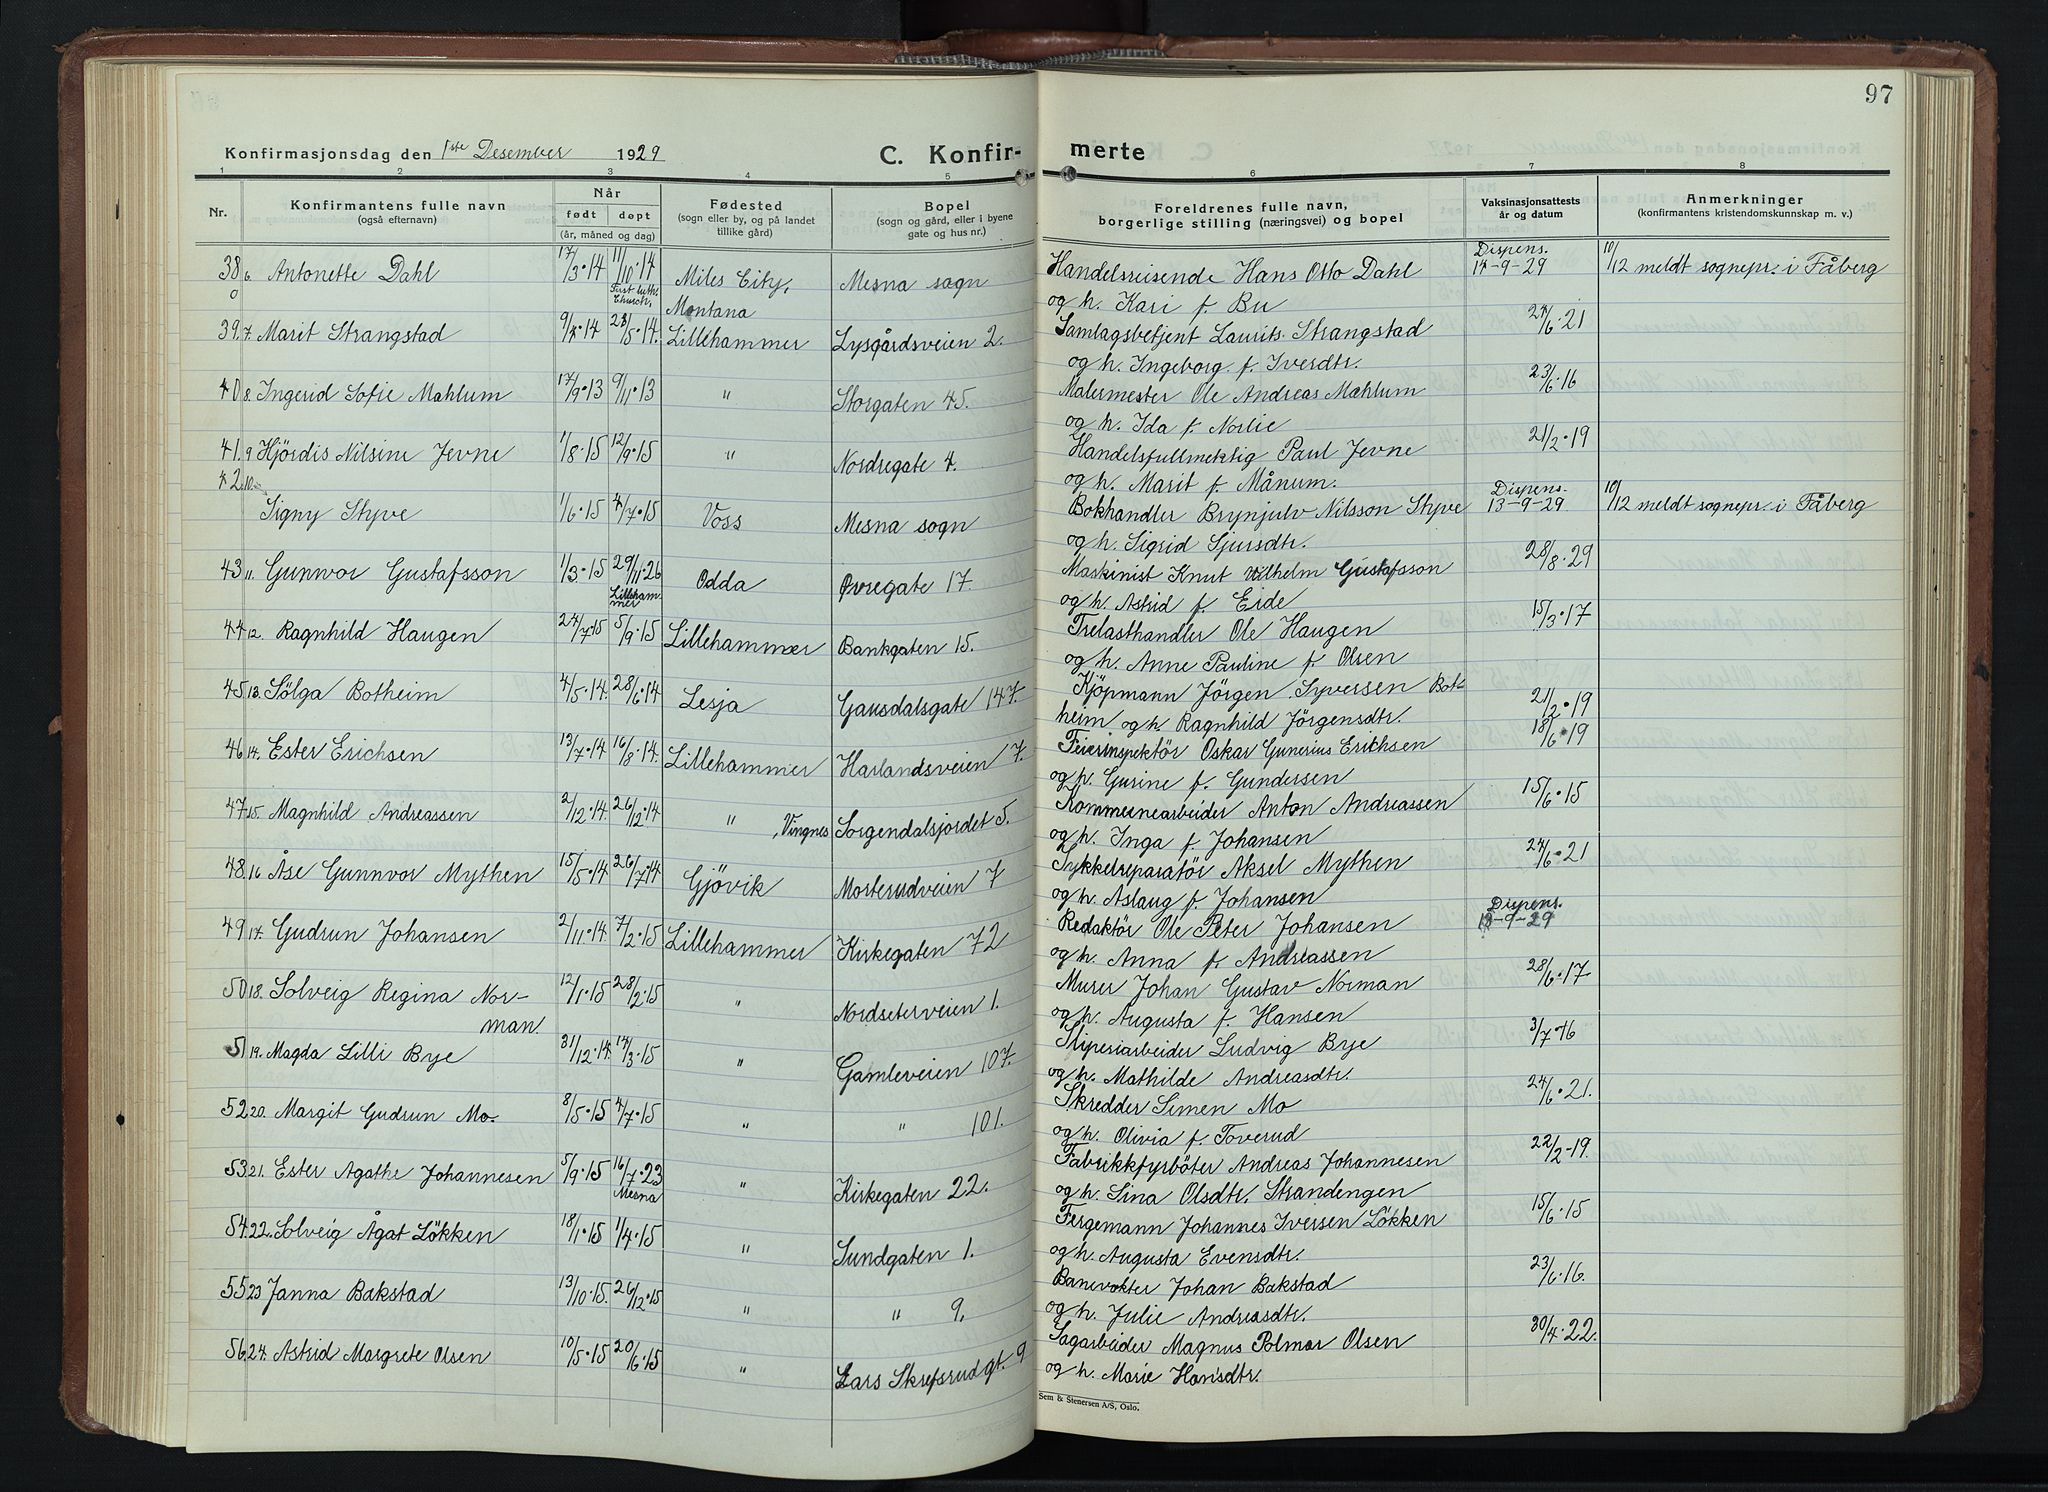 97
Konfirmasjonsdag den 1ste Desember 1929
C. Konfir- merte
1 2 3 4 5 6 7 8
Nr.
Konfirmantens fulle navn
(også efternavn)
Når
født døpt
(år, måned og dag)
Fødested
(sogn eller by, og på landet
tillike gård)
Bopel
(sogn og gård, eller i byene
gate og hus nr.)
Foreldrenes fulle navn,
borgerlige stilling (næringsvei) og bopel
Vaksinasjonsattests
år og datum
Anmerkninger
(konfirmantens kristendomskunnskap m. v.)
38 6 Antonette Dahl 17/3·14 11/10·14 First luth. Church, Miles City, Montana Mesna sogn Handelsreisende Hans Otto Dahl Dispens. 14-9-29 10/12 meldt sognepr. i Fåberg
0
og h. Kari f. Bu
39 7 Marit Strangstad 9/4·14 23/5·14. Lillehammer Lysgårdsveien 2. Samlagsbetjent Laurits Strangstad 24/6·21
og h. Ingeborg f. Iverdtr.
40 8. Ingerid Sofie Mæhlum 17/9·13 9/11·13 " Storgaten 45. Malermester Ole Andreas Mæhlum 23/6·16
og h. Ida f. Norlie
41 9 Hjördis Nilsine Jevne 1/8·15 12/9·15 " Nordregate 4. Handelsfullmektig Paul Jevne 21/2·19
og h. Marit f. Månum.
42 10. Signy Styve 1/6·15 4/7·15 Voss Mesna sogn Bokhandler Brynjulv Nilsson Styve Dispens. 13-9-29 10/12 meldt sognepr. i Fåberg
og h. Sigrid Sjursdtr.
43 11. Gunnvor Gustafsson 1/3·15 29/11·26 Lilleham-mer Odda Øvregate 17. Maskinist Knut Vilhelm Gustafsson 28/8·29
og h. Astrid f. Eide
44 12. Ragnhild Haugen 24/7·15 5/9·15 Lillehammer Bankgaten 15. Trelasthandler Ole Haugen 15/3·17
og h. Anne Pauline f. Olsen
45 13. Sölga Botheim 4/5·14. 28/6·14 Lesja Gausdalsgate 147. Kjöpmann Jörgen Syversen Bot- 21/2·19
heim og h. Ragnhild Jörgensdtr.
46 14. Ester Erichsen 13/7·14 16/8·14. Lillehammer Harlandsveien 7. Feierinspektör Oskar Gunerius Erichsen 18/6·19
og h. Gurine f. Gundersen
47 15. Magnhild Andreassen 2/12·14. 26/12·14 " , Vingnes Sorgendalsjordet 5. Kommunearbeider Anton Andreassen 15/6·15
og h. Inga f. Johansen
48 16 Åse Gunnvor Mythen 15/5·14 26/7·14 Gjövik Morterudveien 7 Sykkelreparatör Aksel Mythen 24/6·21
og h. Aslaug f. Johansen
49 17. Gudrun Johansen 2/11·14. 7/2·15 Lillehammer Kirkegaten 72 Redaktör Ole Peter Johansen Dispens. 13-9-29
og h. Anna f. Andreassen
50 18. Solveig Regina Nor-man. 12/1·15 28/2·15 " Nordseterveien 1. Murer Johan Gustav Norman 28/6·17
og h. Augusta f. Hansen
51 19. Magda Lilli Bye 31/12·14. 14/3·15 " Gamleveien 107. Stiperiarbeider Ludvig Bye 3/7·16
og h. Mathilde Andreasdtr.
52 20. Margit Gudrun Mo. 8/5·15 4/7·15 " " 101. Skredder Simen Mo 24/6·21.
og h. Olivia f. Toverud
53 21. Ester Agathe Johannesen 5/9·15 16/7·23 Mesna " Kirkegaten 22. Fabrikkfyrböter Andreas Johannesen 22/2-19.
og h. Sina Olsdtr. Strandengen
54 22. Solveig Ågat Lökken 18/1·15 1/4·15 " Sundgaten 1. Fergemann Johannes Iversen Lökken 15/6·15
og h. Augusta Evensdtr.
55 23 Janna Bakstad 13/10·15. 26/12·15 " " 9. Banevokter Johan Bakstad 23/6·16.
og h. Julie Andreasdtr.
56 24. Astrid Margrete Olsen 10/5·15 20/6·15 " Lars Skrefsrudgt. 9 Sagarbeider Magnus Polmar Olsen 30/4·22.
og h. Marie Hansdtr.
Sem & Stenersen A/S, Oslo.